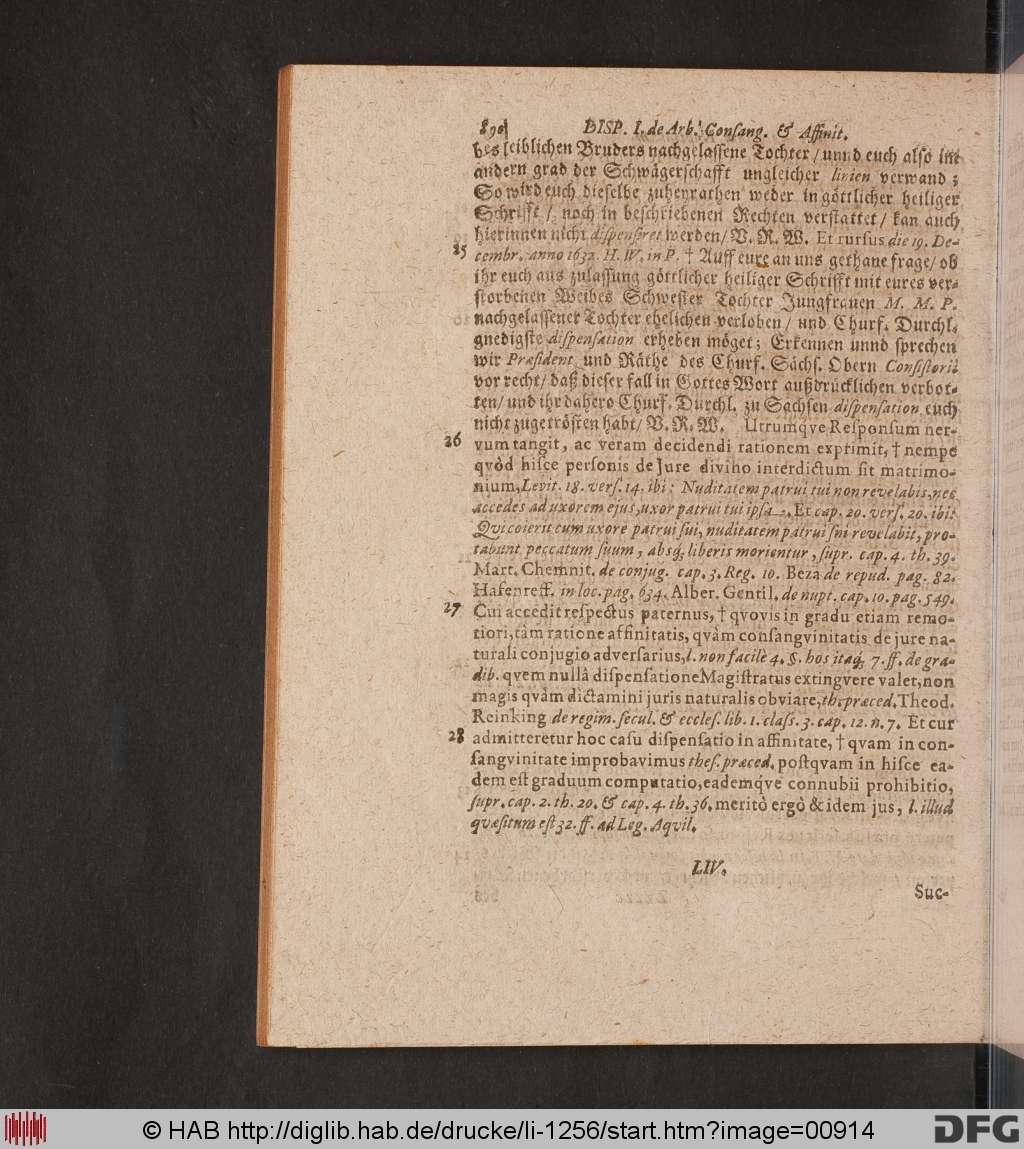 890 DISP. I. de Arb. Consang. & Affinit.
des leiblichen Bruders nachgelassene Tochter / unnd euch also im
andern grad der Schwägerschafft ungleicher linien verwand;
So wird euch dieselbe zuheyrathen weder in göttlicher heiliger
Schrifft / noch in beschriebenen Rechten verstattet / kan auch
hierinnen nicht dispensiret werden / V. R. W. Et rursus die 19. De-
25 cembr. anno 1632. H. W. in P. † Auff eure an uns gethane frage / ob
ihr euch aus zulassung göttlicher heiliger Schrifft mit eures ver-
storbenen Weibes Schwester Tochter Jungfrauen M. M. P.
nachgelassener Tochter ehelichen verloben / und Churf. Durchl.
gnedigste dispensation erheben möget; Erkennen unnd sprechen
wir Præsident und Räthe des Churf. Sächs. Obern Consistorii
vor recht / daß dieser fall in Gottes Wort außdrücklichen verbot-
ten / und ihr dahero Churf. Durchl. zu Sachsen dispensation euch
nicht zugetrösten habt / V. R. W. Utrumqve Responsum ner-
26 vum tangit, ac veram decidendi rationem exprimit, † nempe
qvòd hisce personis de Jure divino interdictum sit matrimo-
nium, Levit. 18. vers. 14. ibi: Nuditatem patrui tui non revelabis, nec
accedes ad uxorem ejus, uxor patrui tui ipsa. Et cap. 20. vers. 20. ibi:
Qui coierit cum uxore patrui sui, nuditatem patrui sui revelabit, pro-
tabunt peccatum suum, absq; liberis morientur, supr. cap. 4. th. 39.
Mart. Chemnit. de conjug. cap. 3. Reg. 10. Beza de repud. pag. 82.
Hafenreff. in loc. pag. 634. Alber. Gentil. de nupt. cap. 10. pag. 549.
27 Cui accedit respectus paternus, † qvovis in gradu etiam remo-
tiori, tàm ratione affinitatis, qvàm consangvinitatis de jure na-
turali conjugio adversarius, l. non facilè 4. §. hos itaq; 7. ff. de gra-
dib. qvem nullâ dispensatione Magistratus extingvere valet, non
magis qvàm dictamini juris naturalis obviare, th. præced. Theod.
Reinking de regim. secul. & eccles. lib. 1. class. 3. cap. 12. n. 7. Et cur
28 admitteretur hoc casu dispensatio in affinitate, † qvam in con-
sangvinitate improbavimus thes. præced. postqvam in hisce ea-
dem est graduum computatio, eademqve connubii prohibitio,
supr. cap. 2. th. 20. & cap. 4. th. 36. meritò ergò & idem jus, l. illud
qvæsitum est 32. ff. ad Leg. Aqvil.
LIV.
Suc-
© HAB http://diglib.hab.de/drucke/li-1256/start.htm?image=00914
DFG